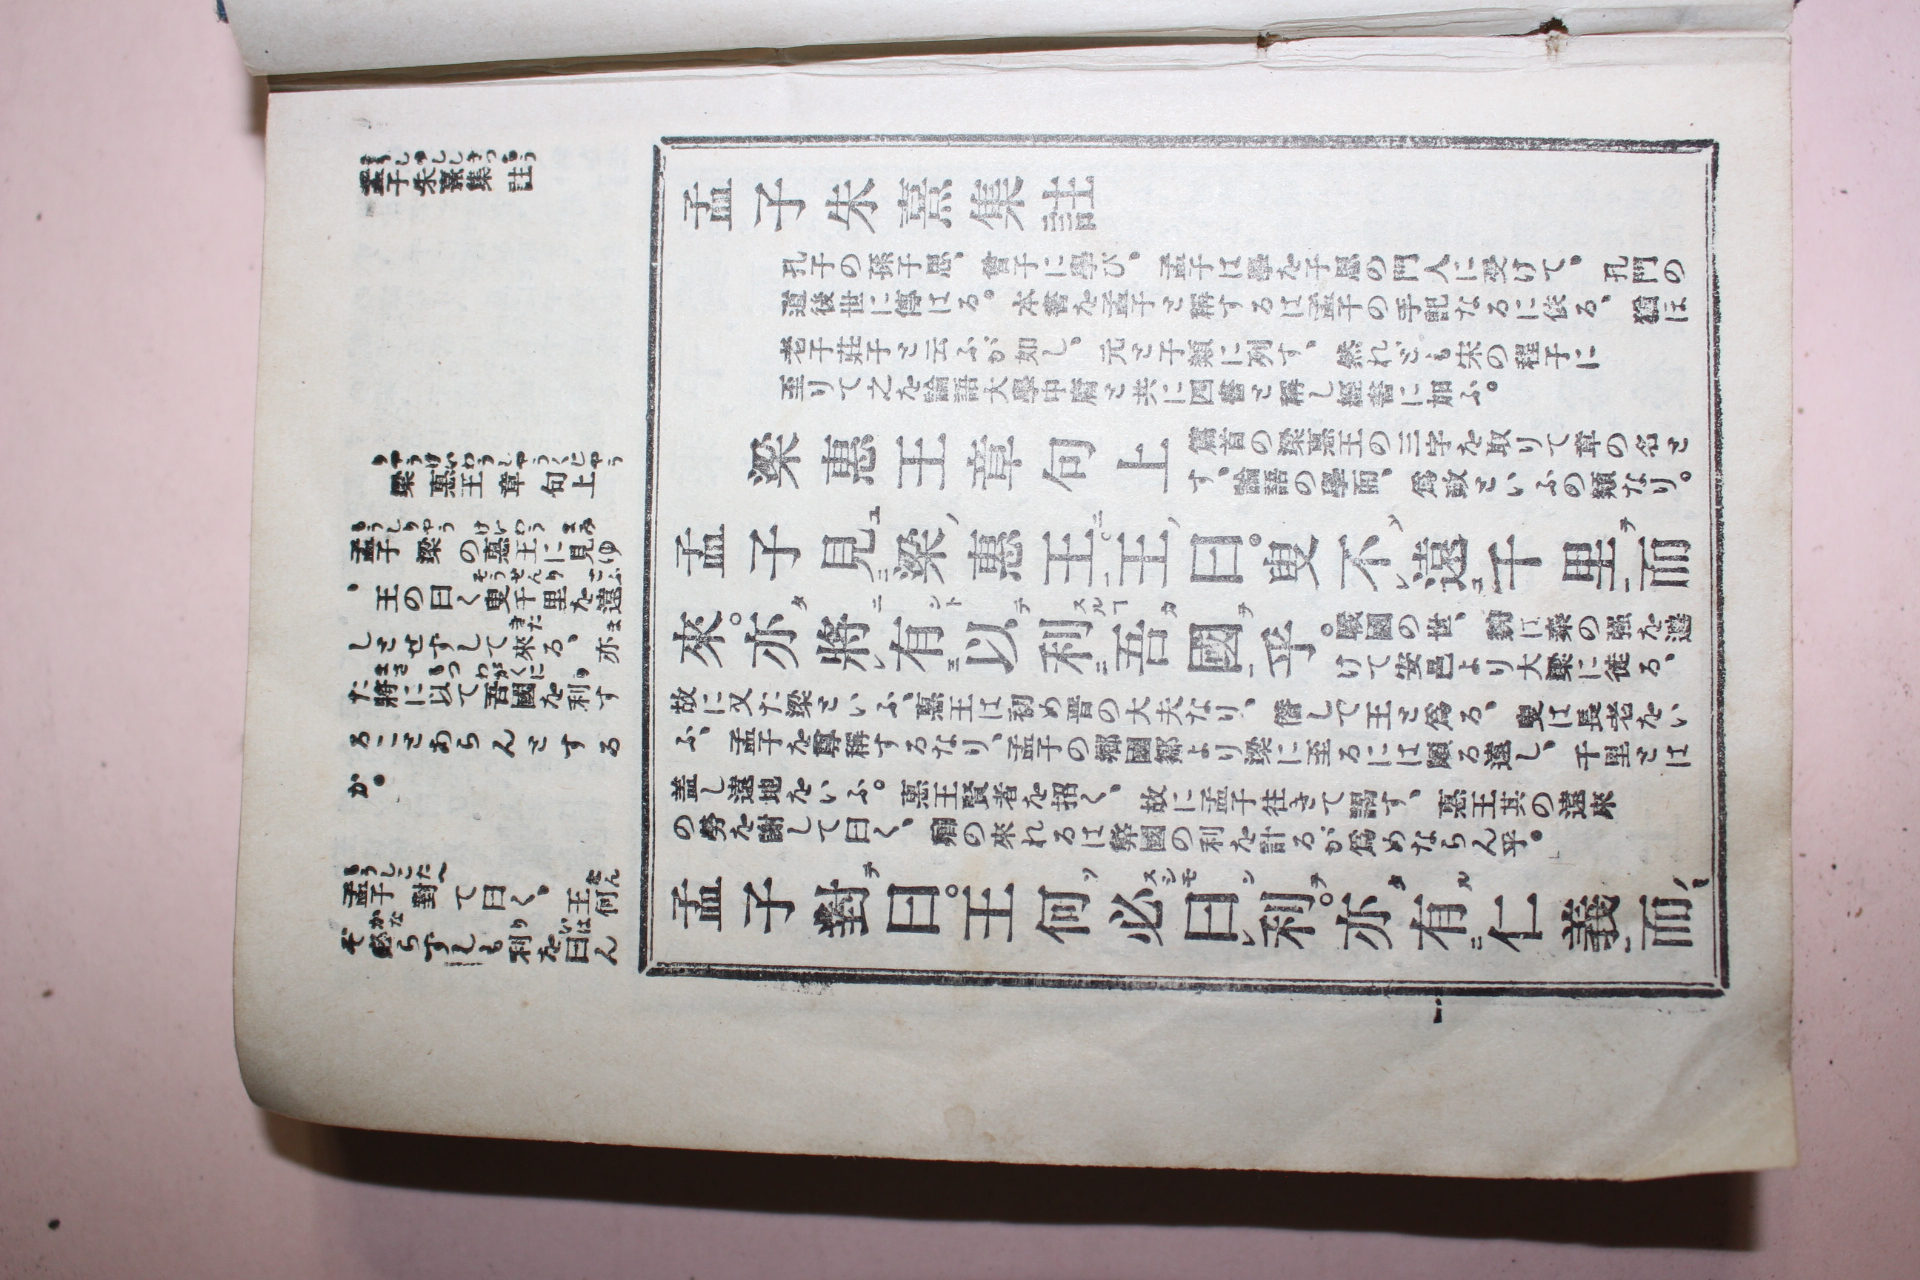 孟子朱熹集註
孔子の孫子思、曾子に學び、孟子は學を子思の門人に受けて、孔門の
道後世に傳はる。本書を孟子と稱するは孟子の手記なるに依る、猶ほ
老子莊子と云ふが如し、元と子類に列す、然れども宋の程子に
至りて之を論語大學中庸と共に四書と稱し經書に加ふ。
梁惠王章句上
篇首の梁惠王の三字を取りて章の名と
す、論語の學而、爲政といふの類なり。
孟子見梁惠王。王曰。叟不遠千里而
來。亦將有以利吾國乎。
戰國の世、魏は秦の强を避
けて安邑より大梁に徙る、
故に又た梁といふ、惠王は初め晉の大夫なり、僭して王と爲る、叟は長老をい
ふ、孟子を尊稱するなり、孟子の鄕國鄒より梁に至るには頗る遠し、千里とは
蓋し遠地をいふ。惠王賢者を招く、故に孟子往きて謁す、惠王其の遠來
の勞を謝して曰く、爾の來れるは弊國の利を計るが爲めならん乎。
孟子對曰。王何必曰利。亦有仁義而
孟子朱熹集註
梁惠王章句上
孟子梁の惠王に見ゆ
、王の曰く叟千里を遠
しとせずして來る、亦
た將に以て吾國を利す
ることあらんとする
か。
孟子對て曰く、王何
ぞ必らずしも利を曰ん
一